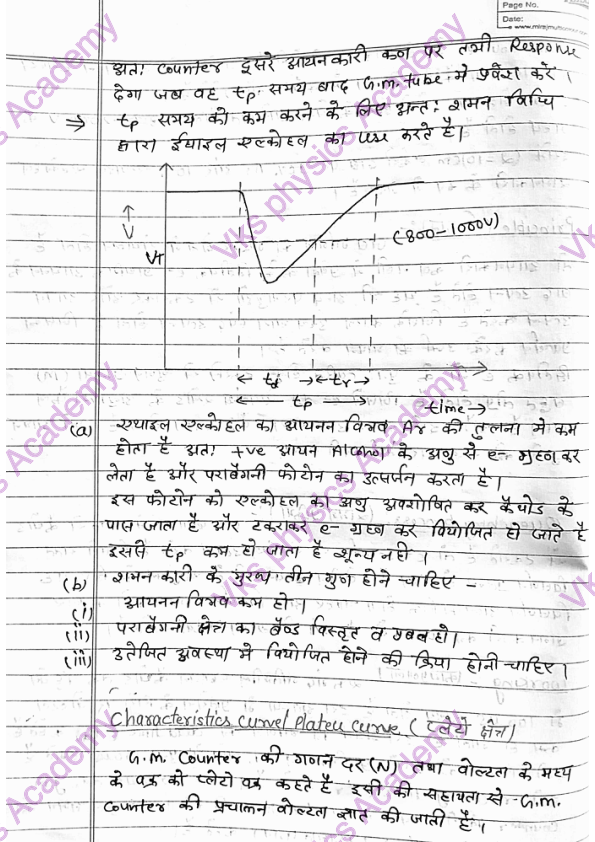 Page No.
Date:
अतः Counter दूसरे आयनकारी कण पर तभी Response
देगा जब वह tp समय बाद G.m. tube मे प्रवेश करें।
⇒ tp समय को कम करने के लिए अन्तः शमन विधि
द्वारा ईथाइल एल्कोहल का use करते है।
↑
V
VT
(-800-1000V)
← td →← tr →
← tp →
time →
(a) एथाइल एल्कोहल का आयनन विभव Ar की तुलना मे कम
होता है अतः +ve आयन Alcohol के अणु से e- ग्रहण कर
लेता है और पराबैगनी फोटोन का उत्सर्जन करता है।
इस फोटोन को एल्कोहल का अणु अवशोषित कर कैथोड के
पास जाता है और टकराकर e- ग्रहण कर वियोजित हो जाते है
इससे tp कम हो जाता है शून्य नही।
(b) शमन कारी के मुख्य तीन गुण होने चाहिए -
(i) आयनन विभव कम हो।
(ii) पराबैगनी क्षेत्र का बैण्ड विस्तृत व प्रबल हो।
(iii) उतेजित अवस्था मे वियोजित होने की क्रिया होनी चाहिए।
Characteristics curve/ Plateu curve (प्लेटो क्षेत्र)
G.m. Counter की गणन दर (N) तथा वोल्टता के मध्य
के वक्र को प्लेटो वक्र कहते है इसी की सहायता से G.m.
Counter की प्रचालन वोल्टता ज्ञात की जाती है।
Vks physics Academy
Vks physics Academy